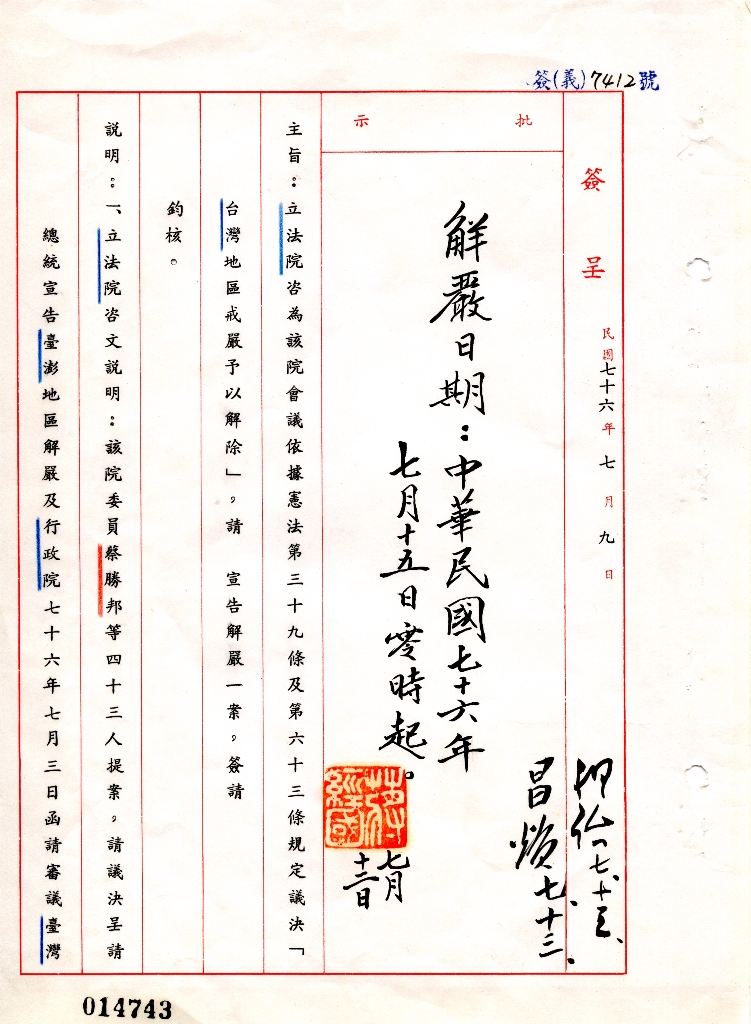 簽(義)7412號
簽呈 民國七十六年七月九日
批示
解嚴日期：中華民國七十六年
七月十五日零時起。
蔣經國
七月
十三日
昌煥 七、十三、
主旨：立法院咨為該院會議依據憲法第三十九條及第六十三條規定議決「
台灣地區戒嚴予以解除」，請　宣告解嚴一案，簽請
鈞核。
說明：一、立法院咨文說明：該院委員蔡勝邦等四十三人提案，請議決呈請
總統宣告臺澎地區解嚴及行政院七十六年七月三日函請審議臺灣
014743